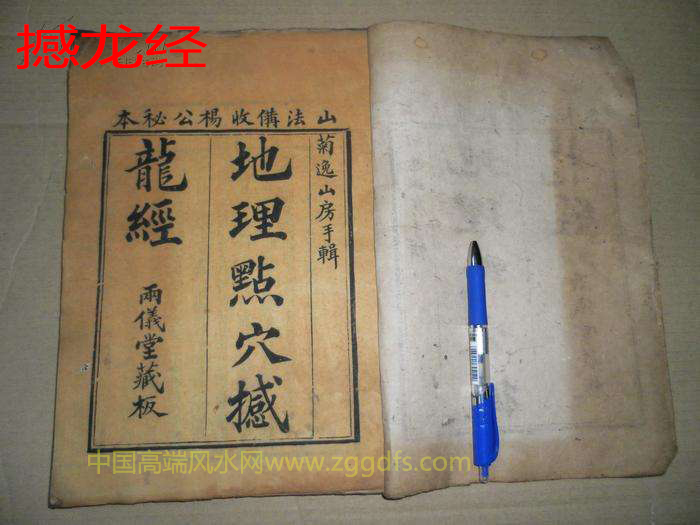 撼龙经
山法備收楊公秘本
菊逸山房手輯
地理點穴撼
龍經
兩儀堂藏板
中国高端风水网www.zggdfs.com